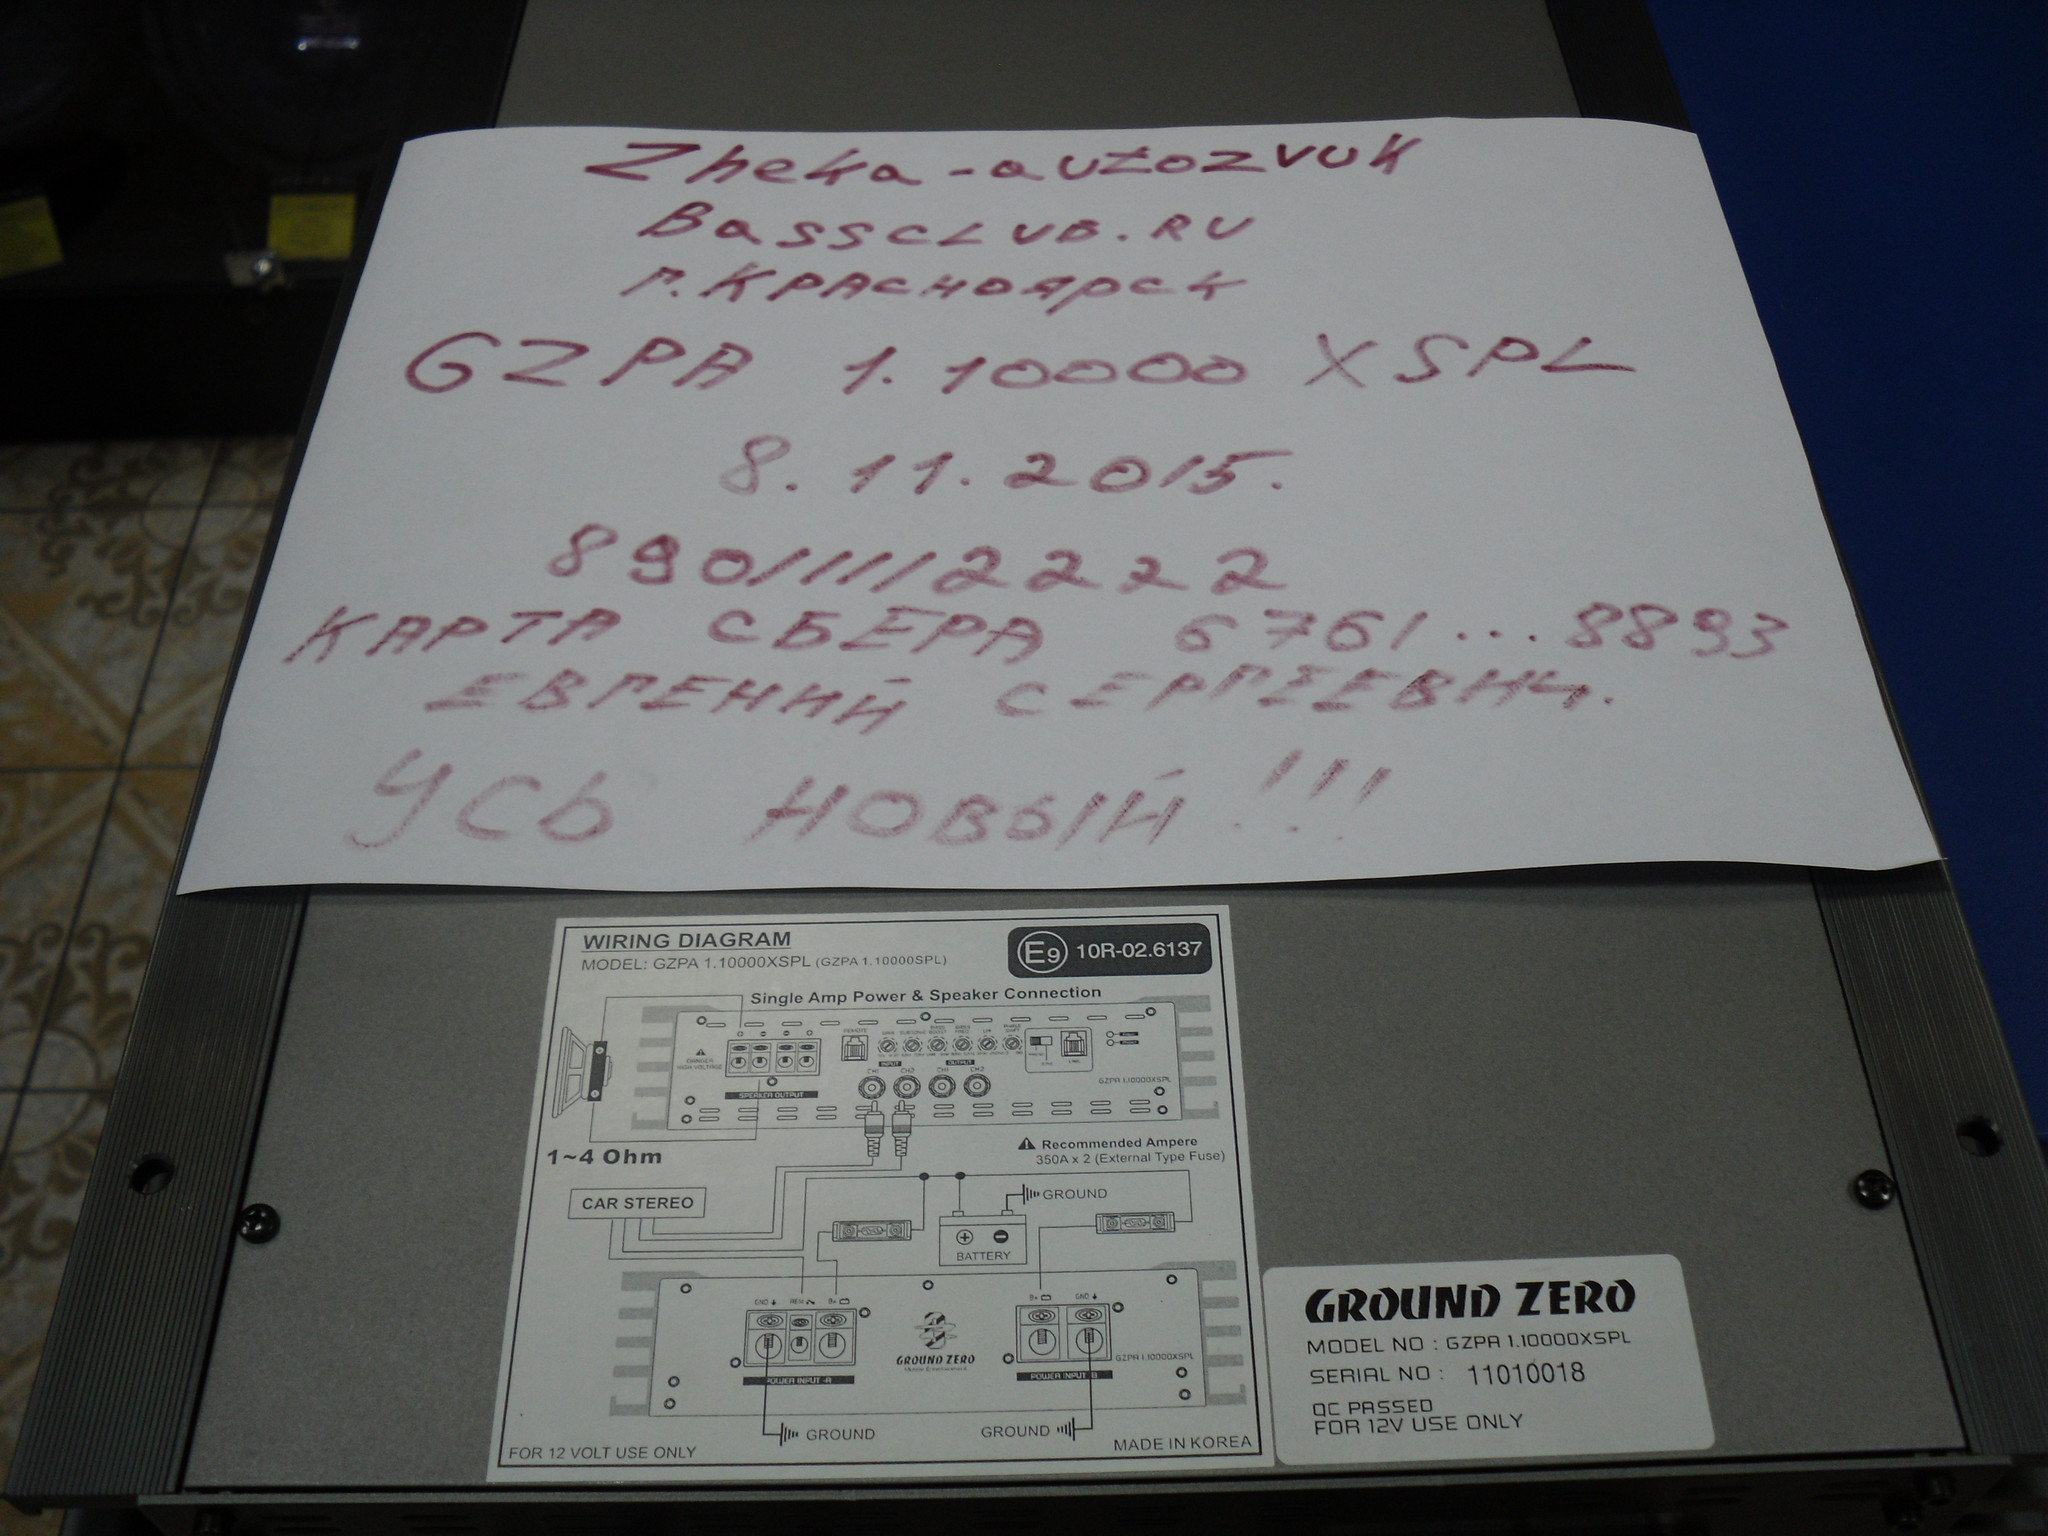 Zheka-autozvuk
BassCLUB.RU
г. Красноярск
GZPA 1.10000 XSPL
8.11.2015.
89011112222
КАРТА СБЕРА 6761...8893
ЕВГЕНИЙ СЕРГЕЕВИЧ.
УСЬ НОВЫЙ!!!
WIRING DIAGRAM
MODEL: GZPA 1.10000XSPL (GZPA 1.10000SPL)
E9 10R-02.6137
Single Amp Power & Speaker Connection
REMOTE
DANGER
HIGH VOLTAGE
INPUT OUTPUT
CH1 CH2 CH1 CH2
SPEAKER OUTPUT
GZPA 1.10000XSPL
1~4 Ohm
Recommended Ampere
350A x 2 (External Type Fuse)
CAR STEREO
GROUND
BATTERY
GND REM B+
B+ GND
GROUND ZERO
GZPA 1.10000XSPL
POWER INPUT -A
POWER INPUT B
GROUND
GROUND
FOR 12 VOLT USE ONLY
MADE IN KOREA
GROUND ZERO
MODEL NO : GZPA 1.10000XSPL
SERIAL NO : 11010018
QC PASSED
FOR 12V USE ONLY